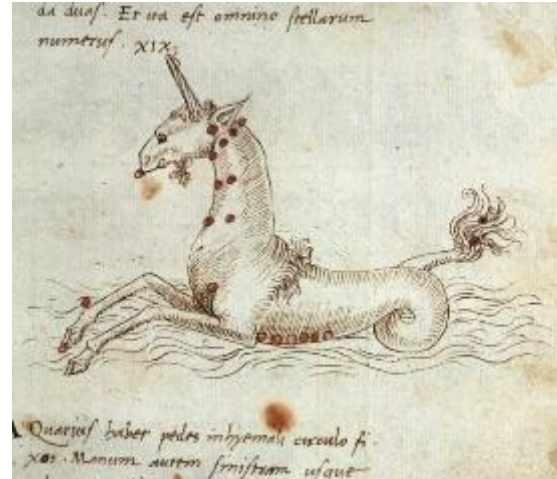 da duas. Et ita est omnino stellarum
numerus. XIX.
AQuarius habet pedes in hyemali circulo fi
xos. Manum autem sinistram usque